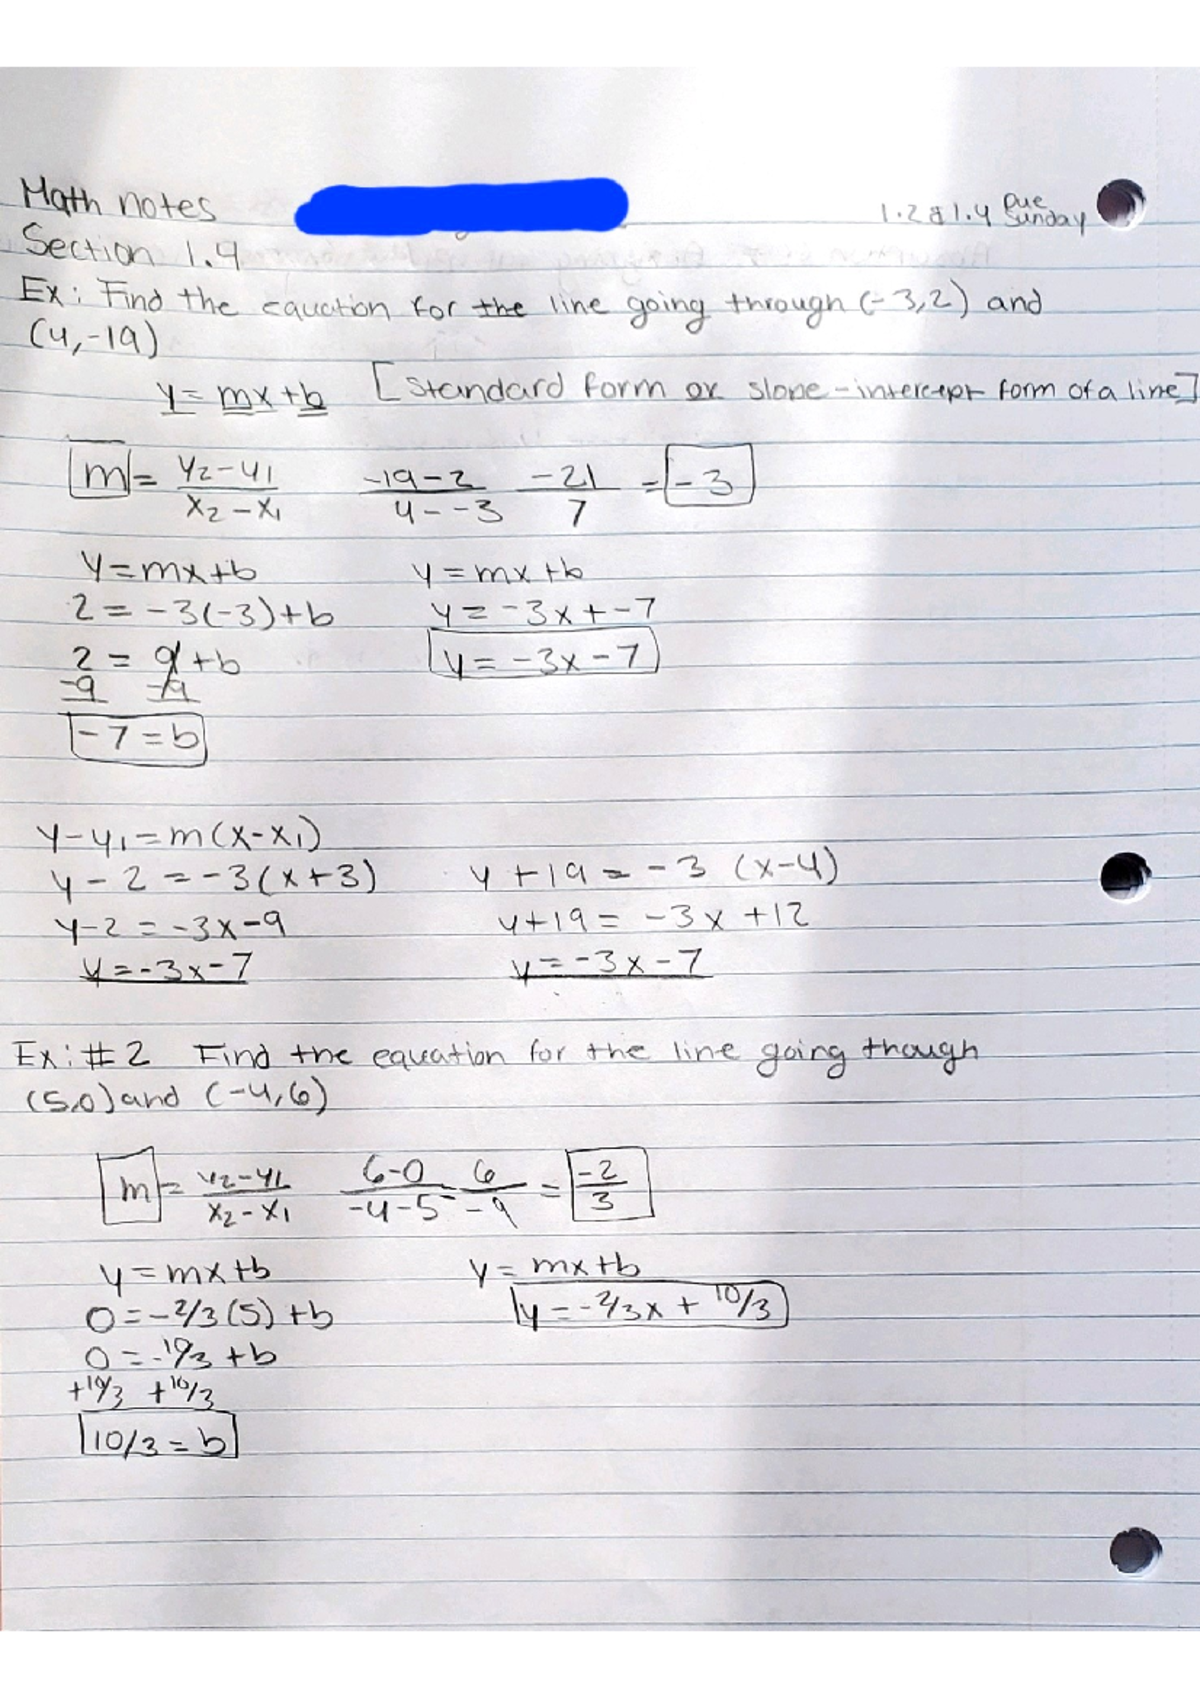 Math notes
1.2 & 1.4 Due Sunday
Section 1.4
Ex: Find the equation for the line going through (-3,2) and
(4,-19)
y = mx + b [standard form or slope-intercept form of a line]
m = y2-y1/x2-x1 -19-2/4--3 -21/7 = -3
y=mx+b y=mx+b
2 = -3(-3)+b y = -3x + -7
2 = 9+b y = -3x-7
-9 -9
-7 = b
y-y1 = m(x-x1)
y-2 = -3(x+3) y+19 = -3 (x-4)
y-2 = -3x-9 y+19 = -3x +12
y = -3x-7 y = -3x-7
Ex: #2 Find the equation for the line going though
(5,0) and (-4,6)
m = y2-y1/x2-x1 6-0/-4-5 = 6/-9 = -2/3
y = mx+b y = mx+b
0 = -2/3(5) +b y = -2/3x + 10/3
0 = -10/3 +b
+10/3 +10/3
10/3 = b